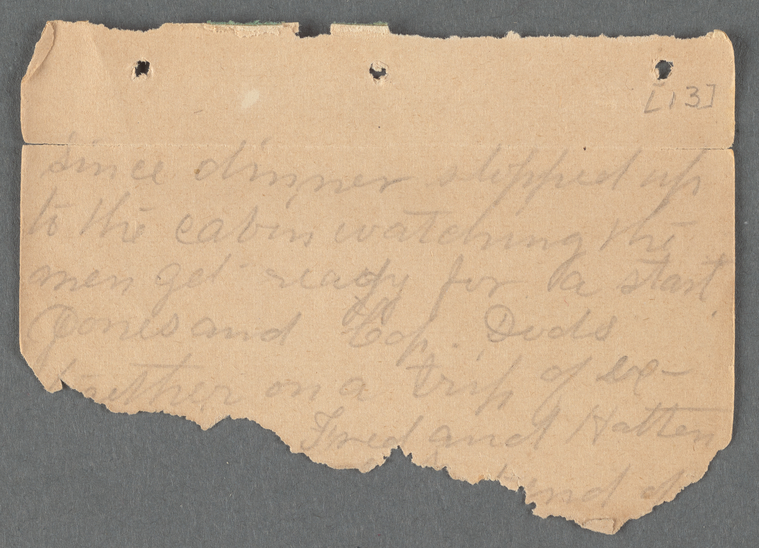 [13]
since dinner stepped up
to the cabin watching the
men get ready for a start
Jones and Cap. Dods
together on a trip of ex-
Fred and Hatten